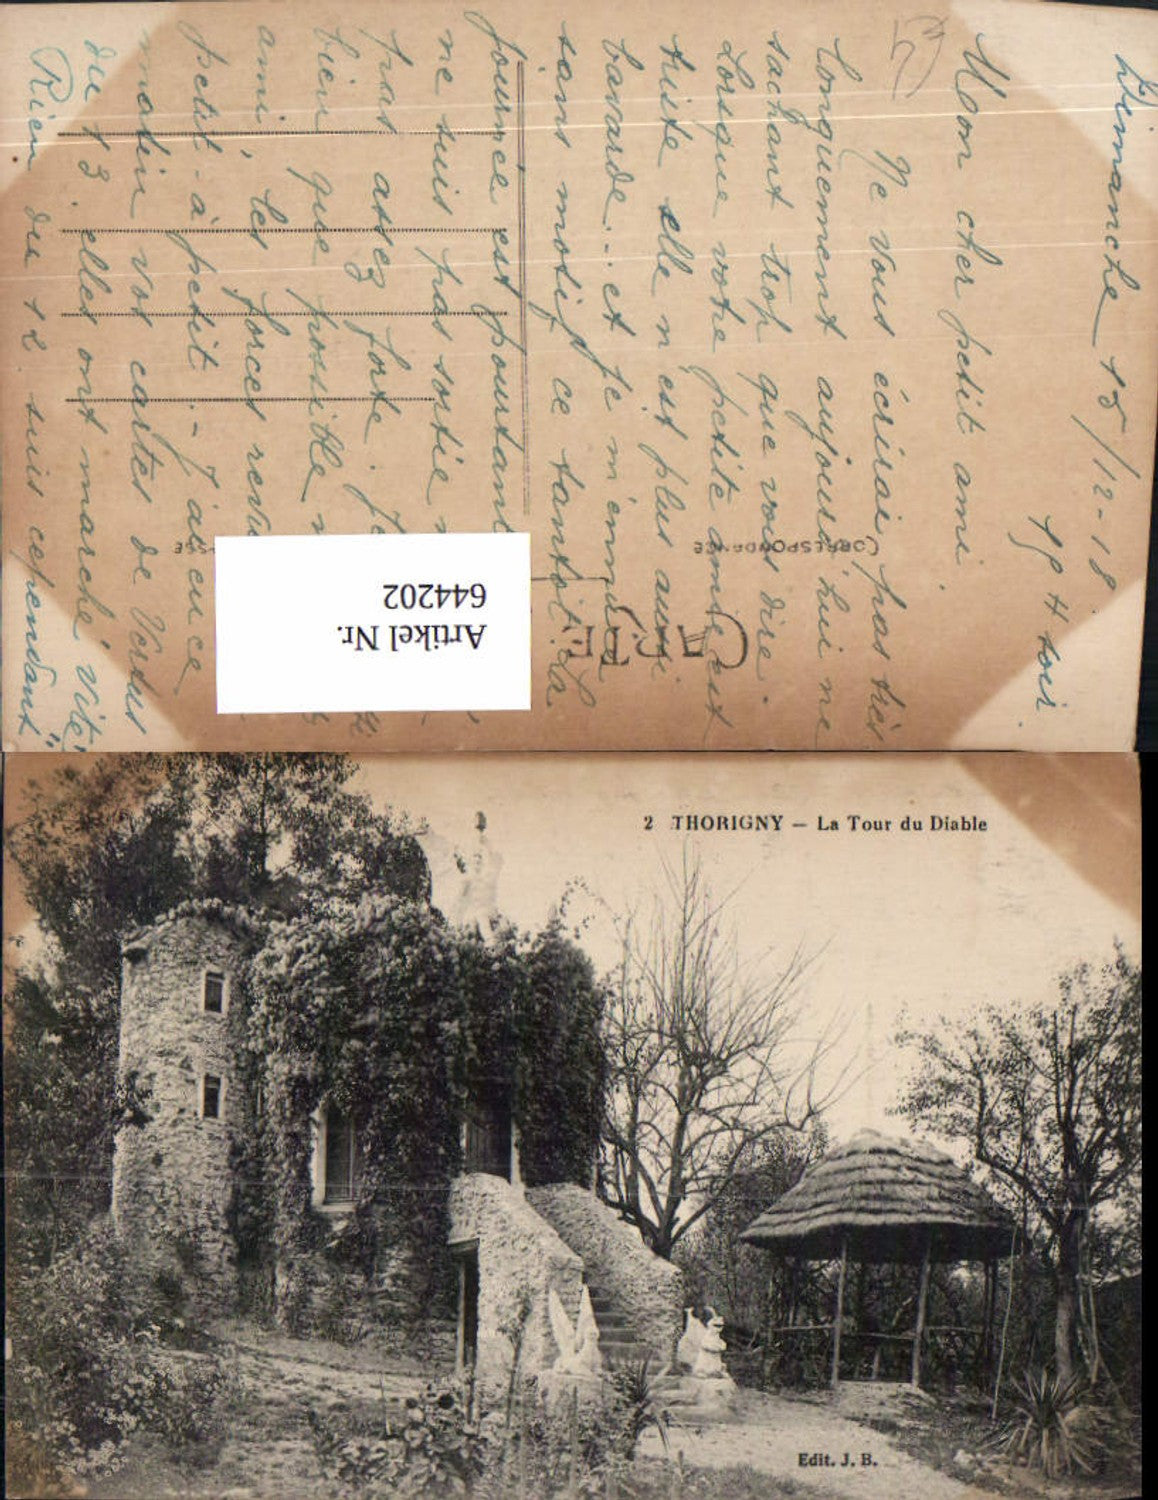 Dimanche 15/12-18.
18 H soir.
Mon cher petit ami.
Ne vous écrirai pas très
longuement aujourd'hui ne
sachant trop que vous dire.
Lorsque votre petite amie est
triste elle n'est plus aussi
bavarde... et je m'ennuie
sans motif ce tantôt. La
journée est pourtant
ne suis pas sortie
pas assez forte. Je
bien que possible
ami, les forces
petit-à petit.- J'ai eu ce
matin vos cartes de Verdun
du 13 elles ont marché vite
Rien du 12 suis cependant
CARTE
CORRESPONDANCE
Artikel Nr.
644202
2 THORIGNY — La Tour du Diable
Edit. J. B.